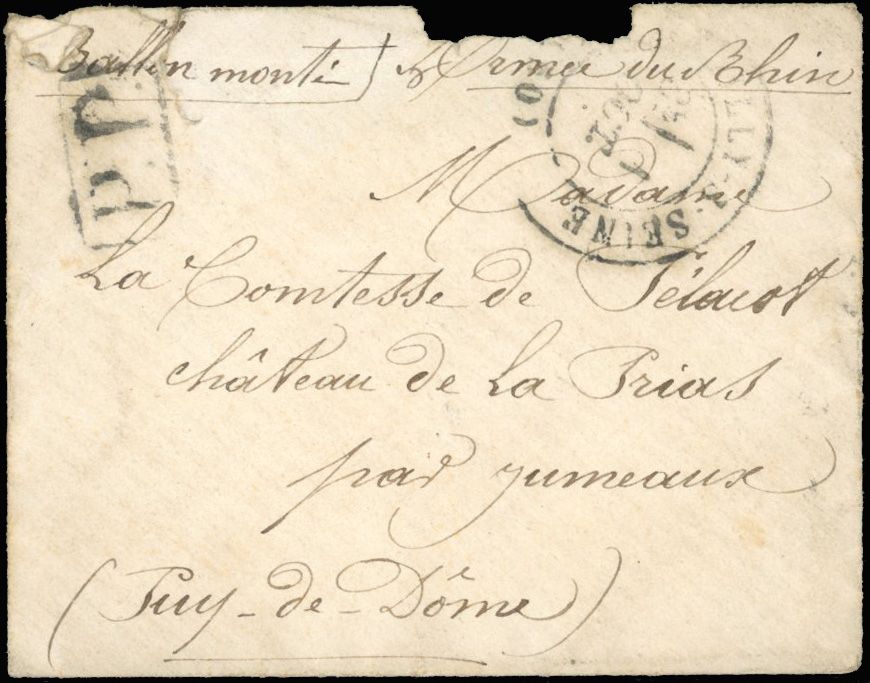 Ballon monté) Armée du Rhin
P.P.
OCT
LLY-S-SEINE
Madame
La Comtesse de
château de La Prias
par Jumeaux
(Puy-de-Dôme)